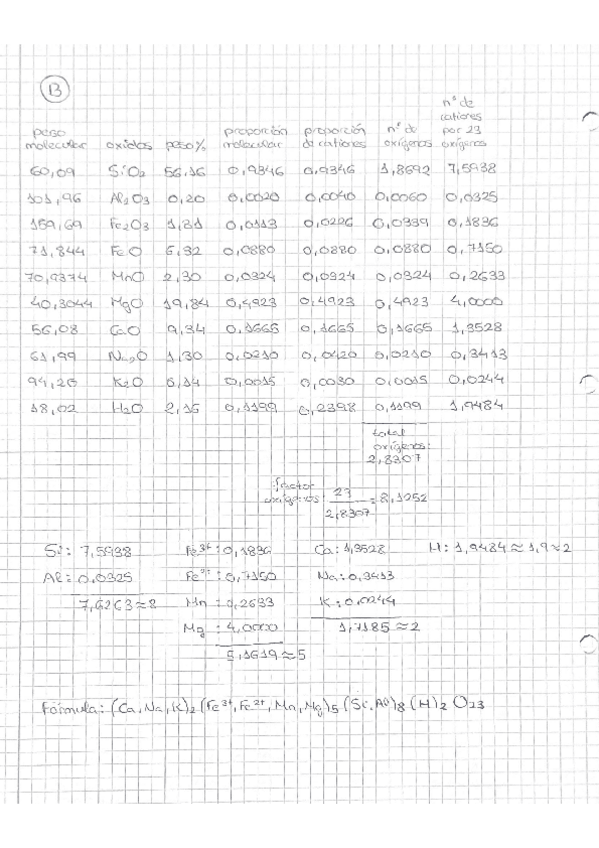 13
peso molecular óxidos peso% proporción molecular proporción de cationes nº de oxígenos nº de cationes por 23 oxígenos
60,09 SiO2 56,16 0,9346 0,9346 1,8692 7,5938
101,96 Al2O3 0,20 0,0020 0,0040 0,0060 0,0325
159,69 Fe2O3 1,81 0,0113 0,0226 0,0339 0,1836
71,844 FeO 6,32 0,0880 0,0880 0,0880 0,7150
70,9374 MnO 2,30 0,0324 0,0324 0,0324 0,2633
40,3044 MgO 19,84 0,4923 0,4923 0,4923 4,0000
56,08 CaO 9,34 0,1665 0,1665 0,1665 1,3528
61,99 Na2O 1,30 0,0210 0,0420 0,0210 0,3413
94,20 K2O 0,14 0,0015 0,0030 0,0015 0,0244
18,02 H2O 2,16 0,1199 0,2398 0,1199 1,9484
total
oxígenos:
2,8307
factor oxígenos 23/2,8307 = 8,1252
Si: 7,5938 Fe3+: 0,1836 Ca: 1,3528 H: 1,9484 ≈ 1,9 ≈ 2
Al: 0,0325 Fe2+: 0,7150 Na: 0,3413
7,6263 ≈ 8 Mn: 0,2633 K: 0,0244
Mg: 4,0000 1,7185 ≈ 2
5,1619 ≈ 5
Fórmula: (Ca, Na, K)2 (Fe3+, Fe2+, Mn, Mg)5 (Si, Al)8 (H)2 O23